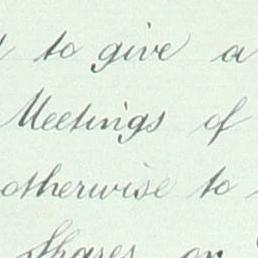 to give a
Meetings of
otherwise to
Shares or